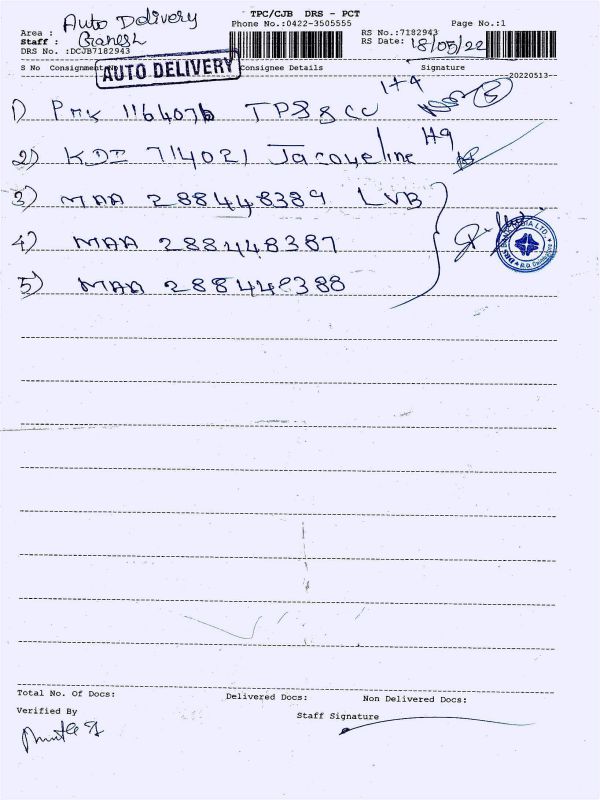 TPC/CJB DRS - PCT
Area : Auto Delivery
Phone No.:0422-3505555
Page No.:1
Staff : Ganesh
RS No.:7182943
DRS No. :DCJB7182943
RS Date: 18/05/22
S No Consignment No
Consignee Details
Signature
AUTO DELIVERY
20220513-
1) PMK 1164076 TPSSCU 1+4
2) KDI 714021 Jacqueline H9
3) MAA 288448389 LVB
4) MAA 288448387
5) MAA 288448388
Total No. Of Docs:
Delivered Docs:
Non Delivered Docs:
Verified By
Staff Signature